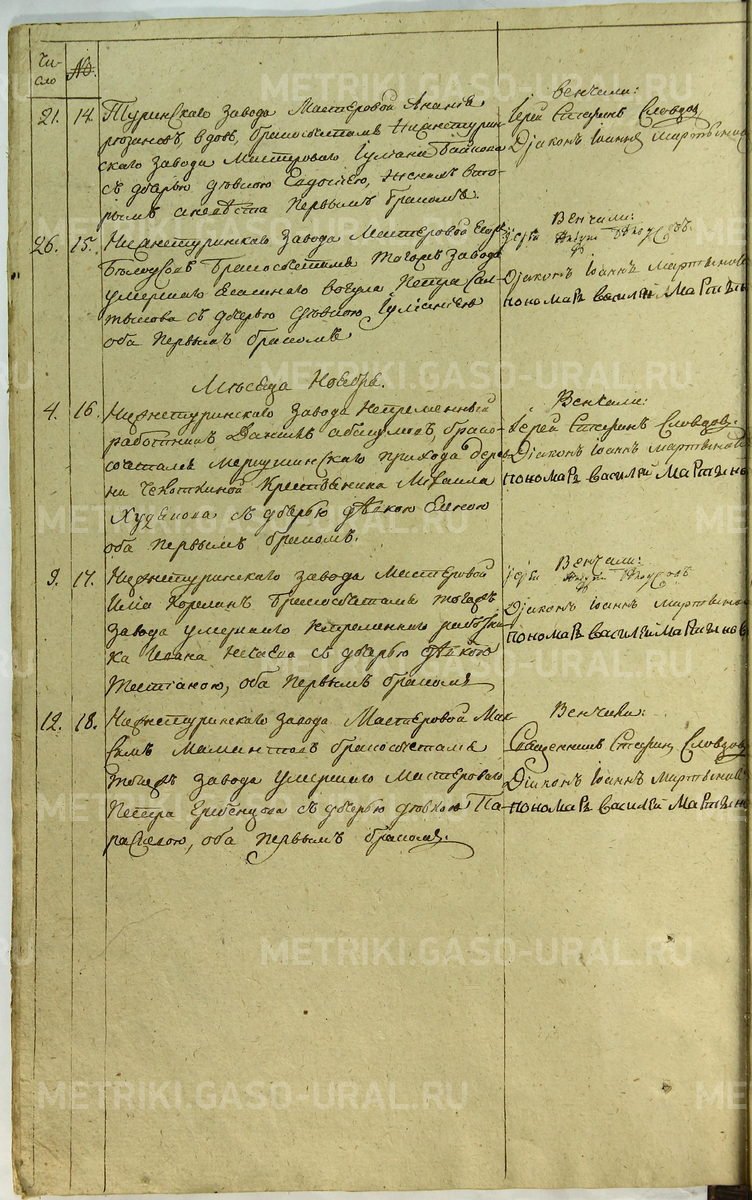 Чи-
сло
№.
21. 14. Туринскаго завода Мастеровой Ананiй
вдовъ, бракосочетался Нижнетурин-
скаго завода Мастероваго Iулiана
съ дочерью девкою Евдокiею, женихъ вто-
рымъ а невеста первымъ бракомъ.
Венчали:
Iерей Словцов
Дiаконъ Iоаннъ Мартынов
26. 15. Нижнетуринскаго завода Мастеровой
Белоусовъ бракосочетался тогожъ завода
умершаго вогула Петра Сал-
тыкова съ дочерью девкою Iулианiею
оба первымъ бракомъ
Венчали:
Iерей
Дiаконъ Iоаннъ Мартынов
пономарь василей Мартынов
Месяца Ноября.
4. 16. Нижнетуринскаго завода Непременный
работникъ Данилъ бракосо-
сочетался прихода дерев-
ни Крестьянина Михаила
Худякова съ дочерью девкою Еленою
оба первымъ бракомъ.
Венчали:
Iерей Словцовъ.
Дiаконъ Iоаннъ Мартынов
пономарь василей Мартынов
9. 17. Нижнетуринскаго завода Мастеровой
Илiа Корелинъ бракосочетался тогожъ
завода умершаго непременнаго работни-
ка Ивана съ дочерью девкою
оба первымъ бракомъ
Венчали:
Iерей
Дiаконъ Iоаннъ Мартынов
пономарь василей Мартынов
12. 18. Нижнетуринскаго завода Мастеровой Мак-
симъ бракосочетался
тогожъ завода умершаго Мастероваго
Петра съ дочерью девкою Па-
раскевою, оба первымъ бракомъ.
Венчали:
Священникъ Словцов
Дiаконъ Iоаннъ Мартынов
пономарь василей Мартынов
METRIKI.GASO-URAL.RU